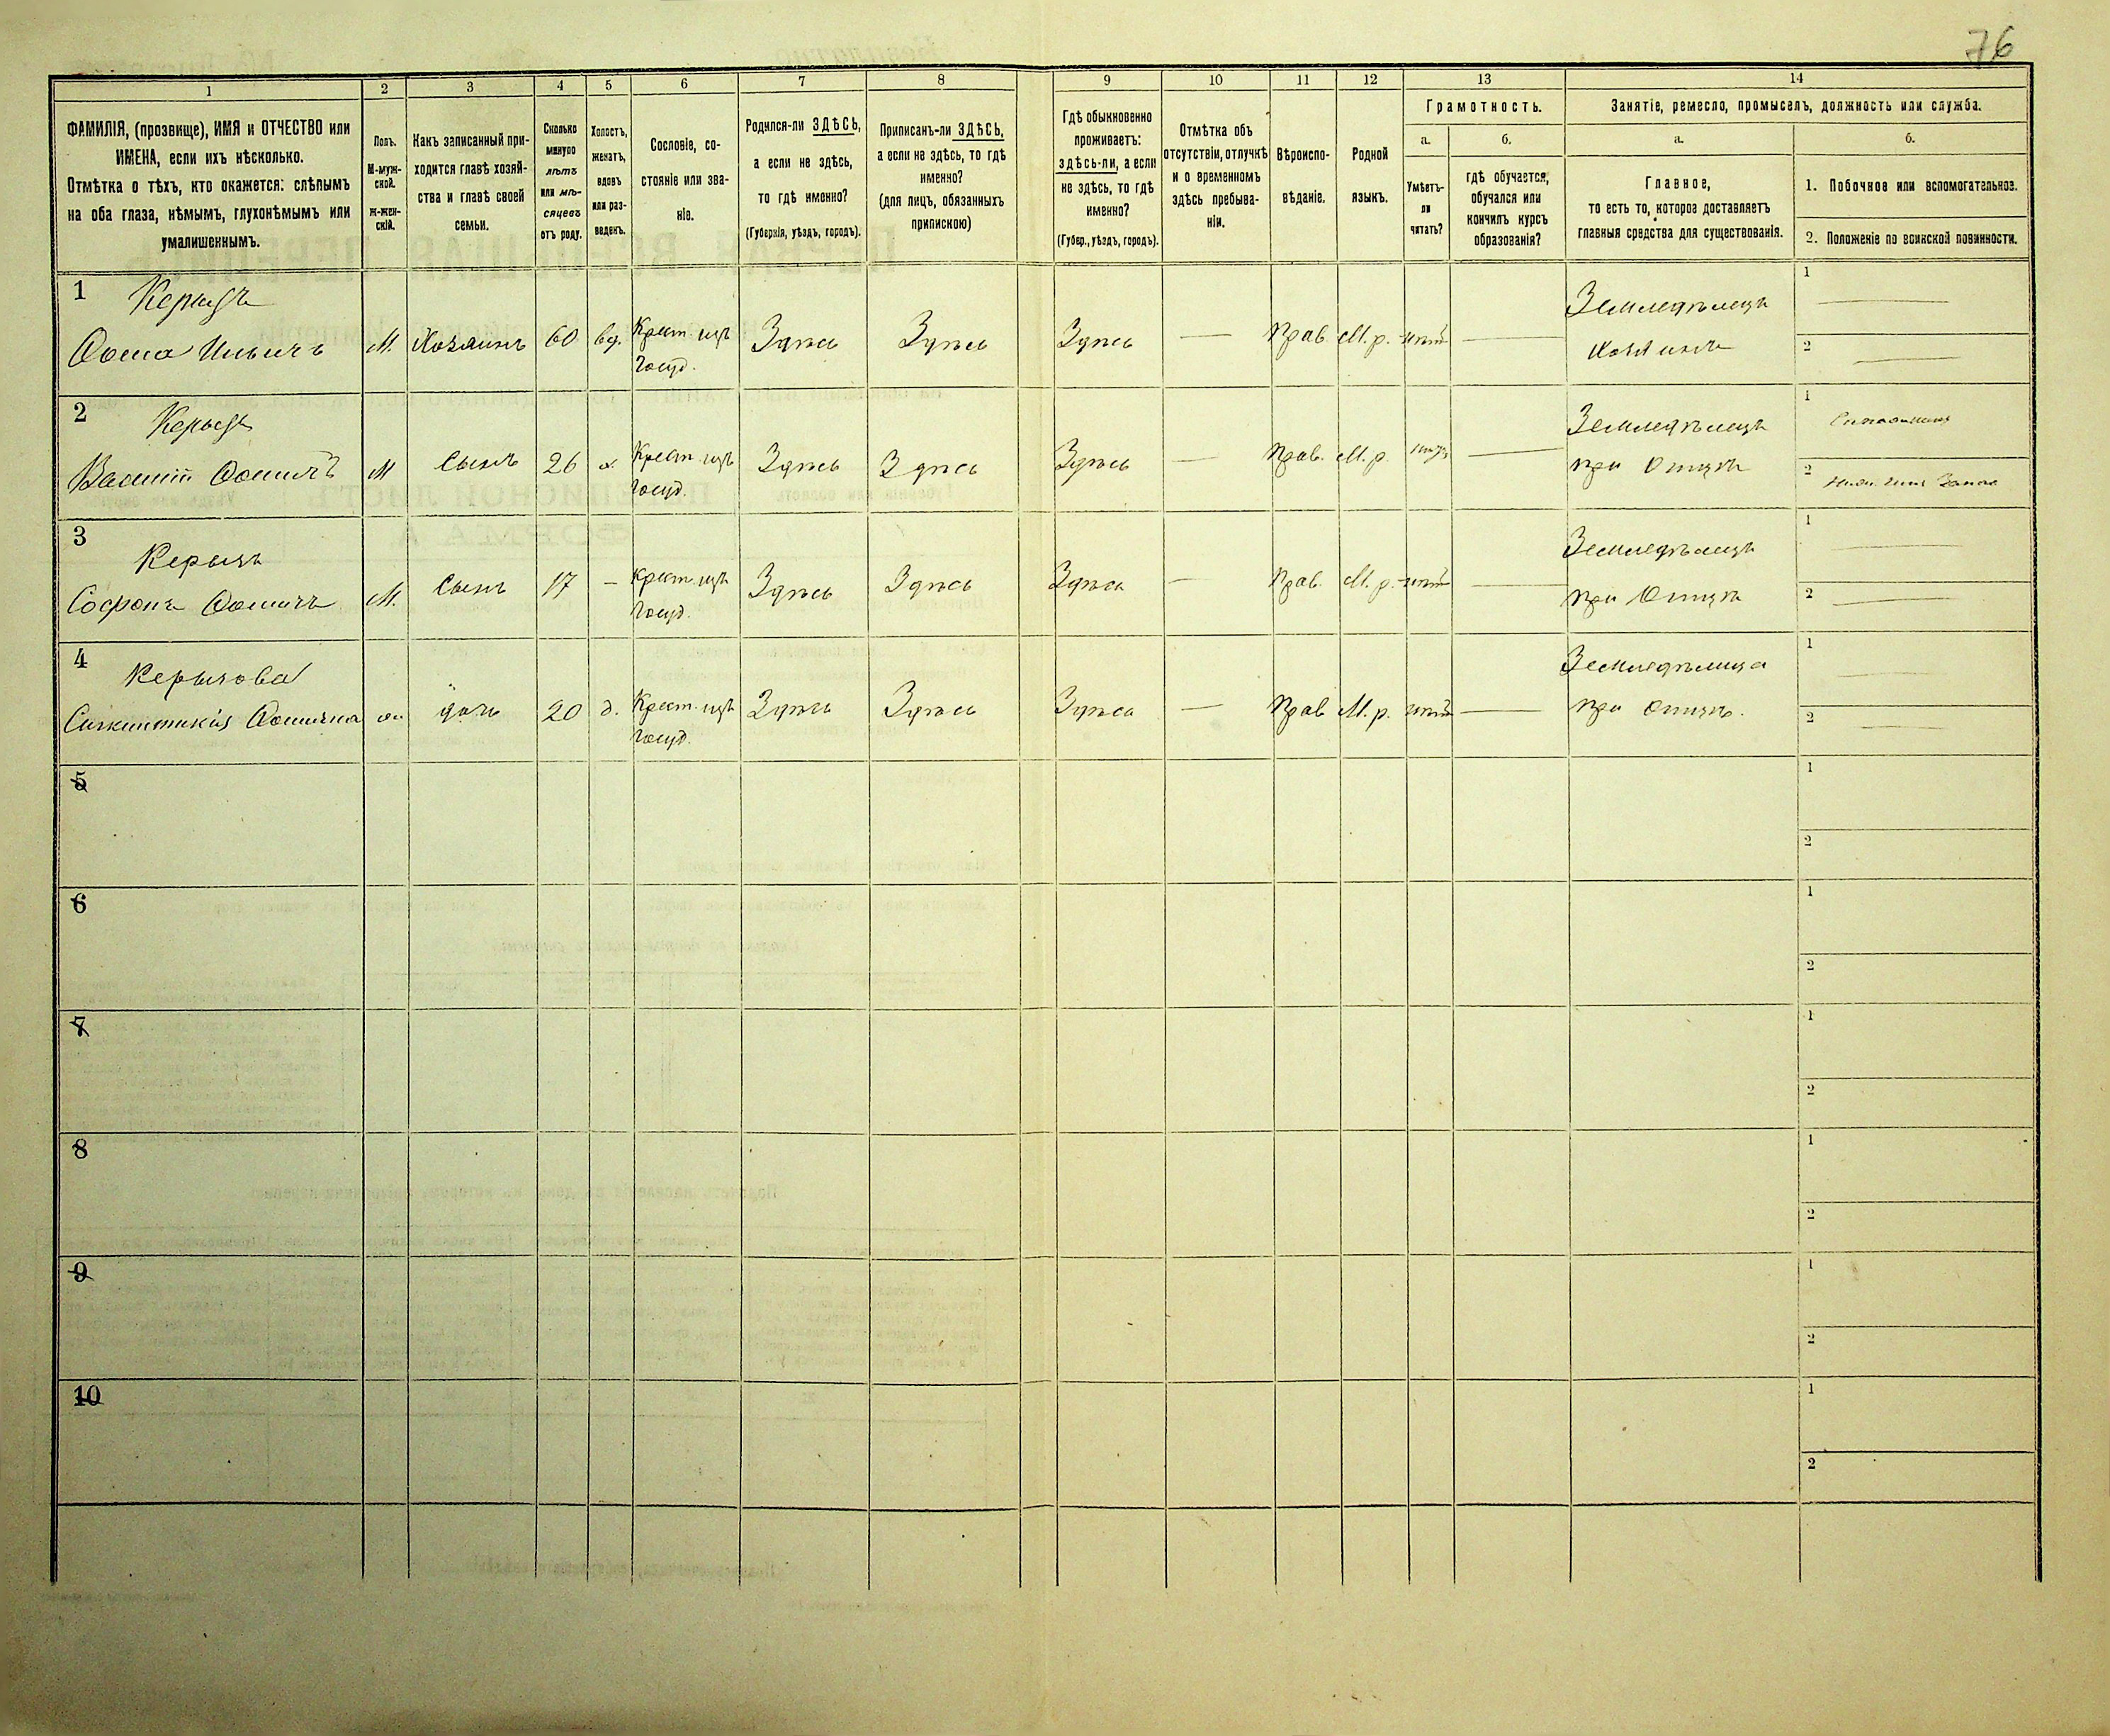 76
1
2
3
4
5
6
7
8
9
10
11
12
13
14
ФАМИЛІЯ, (прозвище), ИМЯ и ОТЧЕСТВО или
ИМЕНА, если ихъ нѣсколько.
Отмѣтка о тѣхъ, кто окажется: слѣпымъ
на оба глаза, нѣмымъ, глухонѣмымъ или
умалишеннымъ.
Полъ.
М-муж-
ской.
ж-жен-
скій.
Какъ записанный при-
ходится главѣ хозяй-
ства и главѣ своей
семьи.
Сколько
минуло
лѣтъ
или мѣ-
сяцевъ
отъ роду.
Холостъ,
женатъ,
вдовъ
или раз-
веденъ.
Сословіе, со-
стояніе или зва-
ніе.
Родился-ли ЗДѢСЬ,
а если не здѣсь,
то гдѣ именно?
(Губернія, уѣздъ, городъ).
Приписанъ-ли ЗДѢСЬ,
а если не здѣсь, то гдѣ
именно?
(для лицъ, обязанныхъ
припискою)
Гдѣ обыкновенно
проживаетъ:
здѣсь-ли, а если
не здѣсь, то гдѣ
именно?
(Губер., уѣздъ, городъ).
Отмѣтка объ
отсутствіи, отлучкѣ
и о временномъ
здѣсь пребыва-
ніи.
Вѣроиспо-
вѣданіе.
Родной
языкъ.
Грамотность.
а.
Умѣетъ-
ли
читать?
б.
гдѣ обучается,
обучался или
кончилъ курсъ
образованія?
Занятіе, ремесло, промыселъ, должность или служба.
а.
Главное,
то есть то, которое доставляетъ
главныя средства для существованія.
б.
1. Побочное или вспомогательное.
2. Положеніе по воинской повинности.
1
Ѳома Ильичъ
М. Хозяинъ 60 вд. Крест. изъ
Госуд.
Здѣсь Здѣсь Здѣсь — Прав. М. р. нѣтъ —
Земледѣлецъ
Хозяинъ
1 —
2 —
2
Ѳомичъ
М Сынъ 26 Крест. изъ
Госуд.
Здѣсь Здѣсь Здѣсь — Прав. М. р. —
Земледѣлецъ
при Отцѣ
1
2
3
Софронъ Ѳомичъ
М. Сынъ 17 — Крест. изъ
Госуд.
Здѣсь Здѣсь Здѣсь — Прав. М. р. нѣтъ —
Земледѣлецъ
при Отцѣ
1 —
2 —
4
Ѳомична
дочь 20 д. Крест. изъ
Госуд.
Здѣсь Здѣсь Здѣсь — Прав М. р. нѣтъ —
при Отцѣ.
1 —
2 —
5
1
2
6
1
2
7
1
2
8
1
2
9
1
2
10
1
2